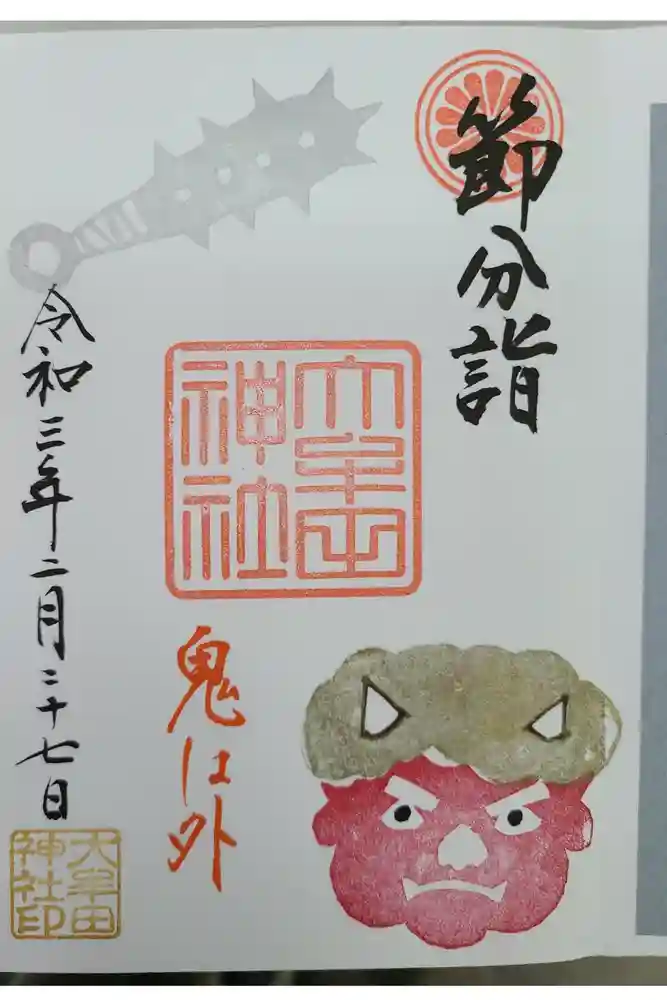 節分詣
大牟田
神社
鬼は外
令和三年二月二十七日
大牟田
神社印